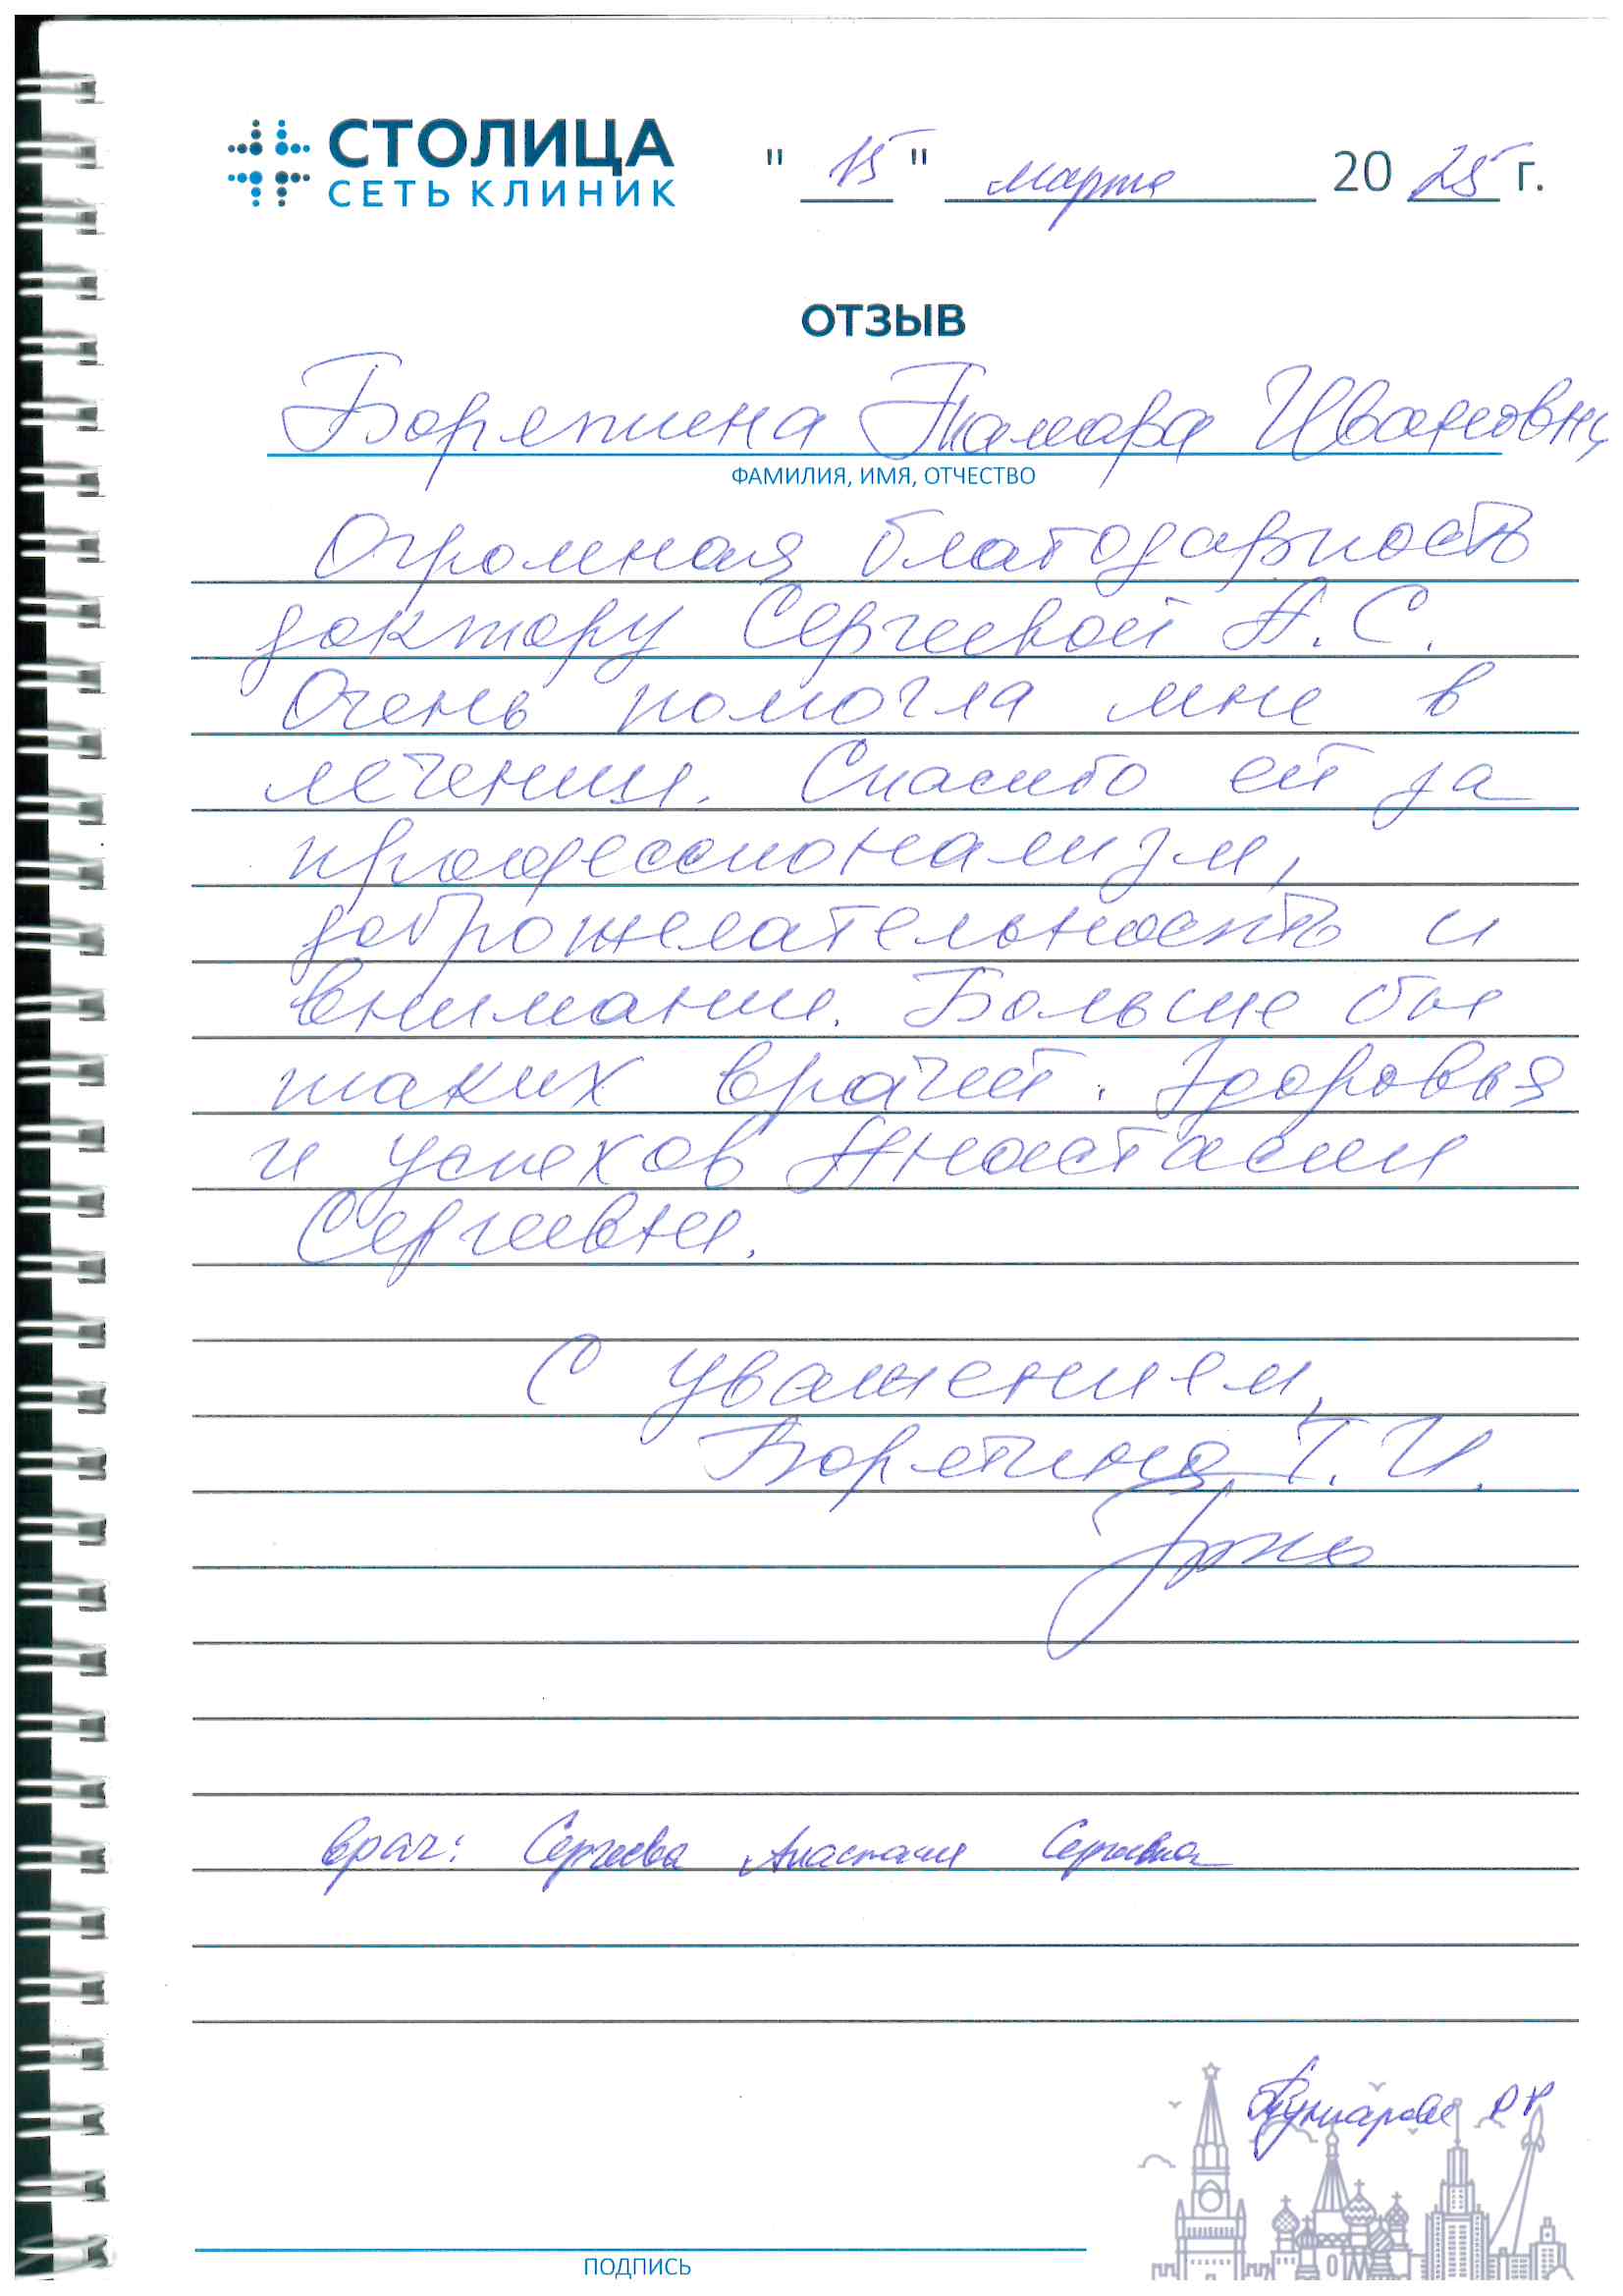 СТОЛИЦА
СЕТЬ КЛИНИК
"15" марта 2025 г.
ОТЗЫВ
Тамара Ивановна
ФАМИЛИЯ, ИМЯ, ОТЧЕСТВО
Огромная благодарность
доктору Сергеевой А.С.
Очень помогла мне в
лечении. Спасибо ей за
профессионализм,
доброжелательность и
внимание. Больше бы
таких врачей. Здоровья
и успехов Анастасии
Сергеевне.
С уважением,
Т.И.
врач: Сергеева Анастасия Сергеевна
ПОДПИСЬ